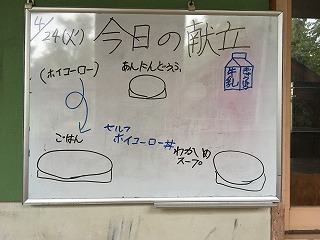 4/24(火) 今日の献立
ぎゅうにゅう
牛乳
(ホイコーロー)
あんにんどうふ
ごはん
セルフ
ホイコーロー丼
わかめ
スープ